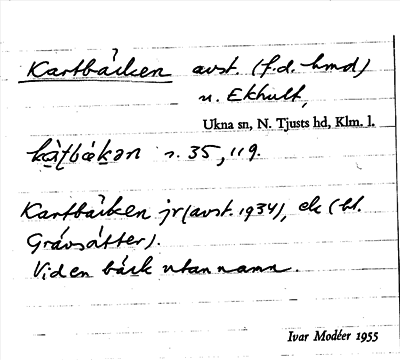 Kartbäcken avst. (f.d. hmd)
u. Ekhult,
Ukna sn, N. Tjusts hd, Klm. l.
s. 35, 119.
Kartbäcken jr (avst. 1934), ek (bl.
Grävsätter).
Vid en bäck utan namn.
Ivar Modéer 1955